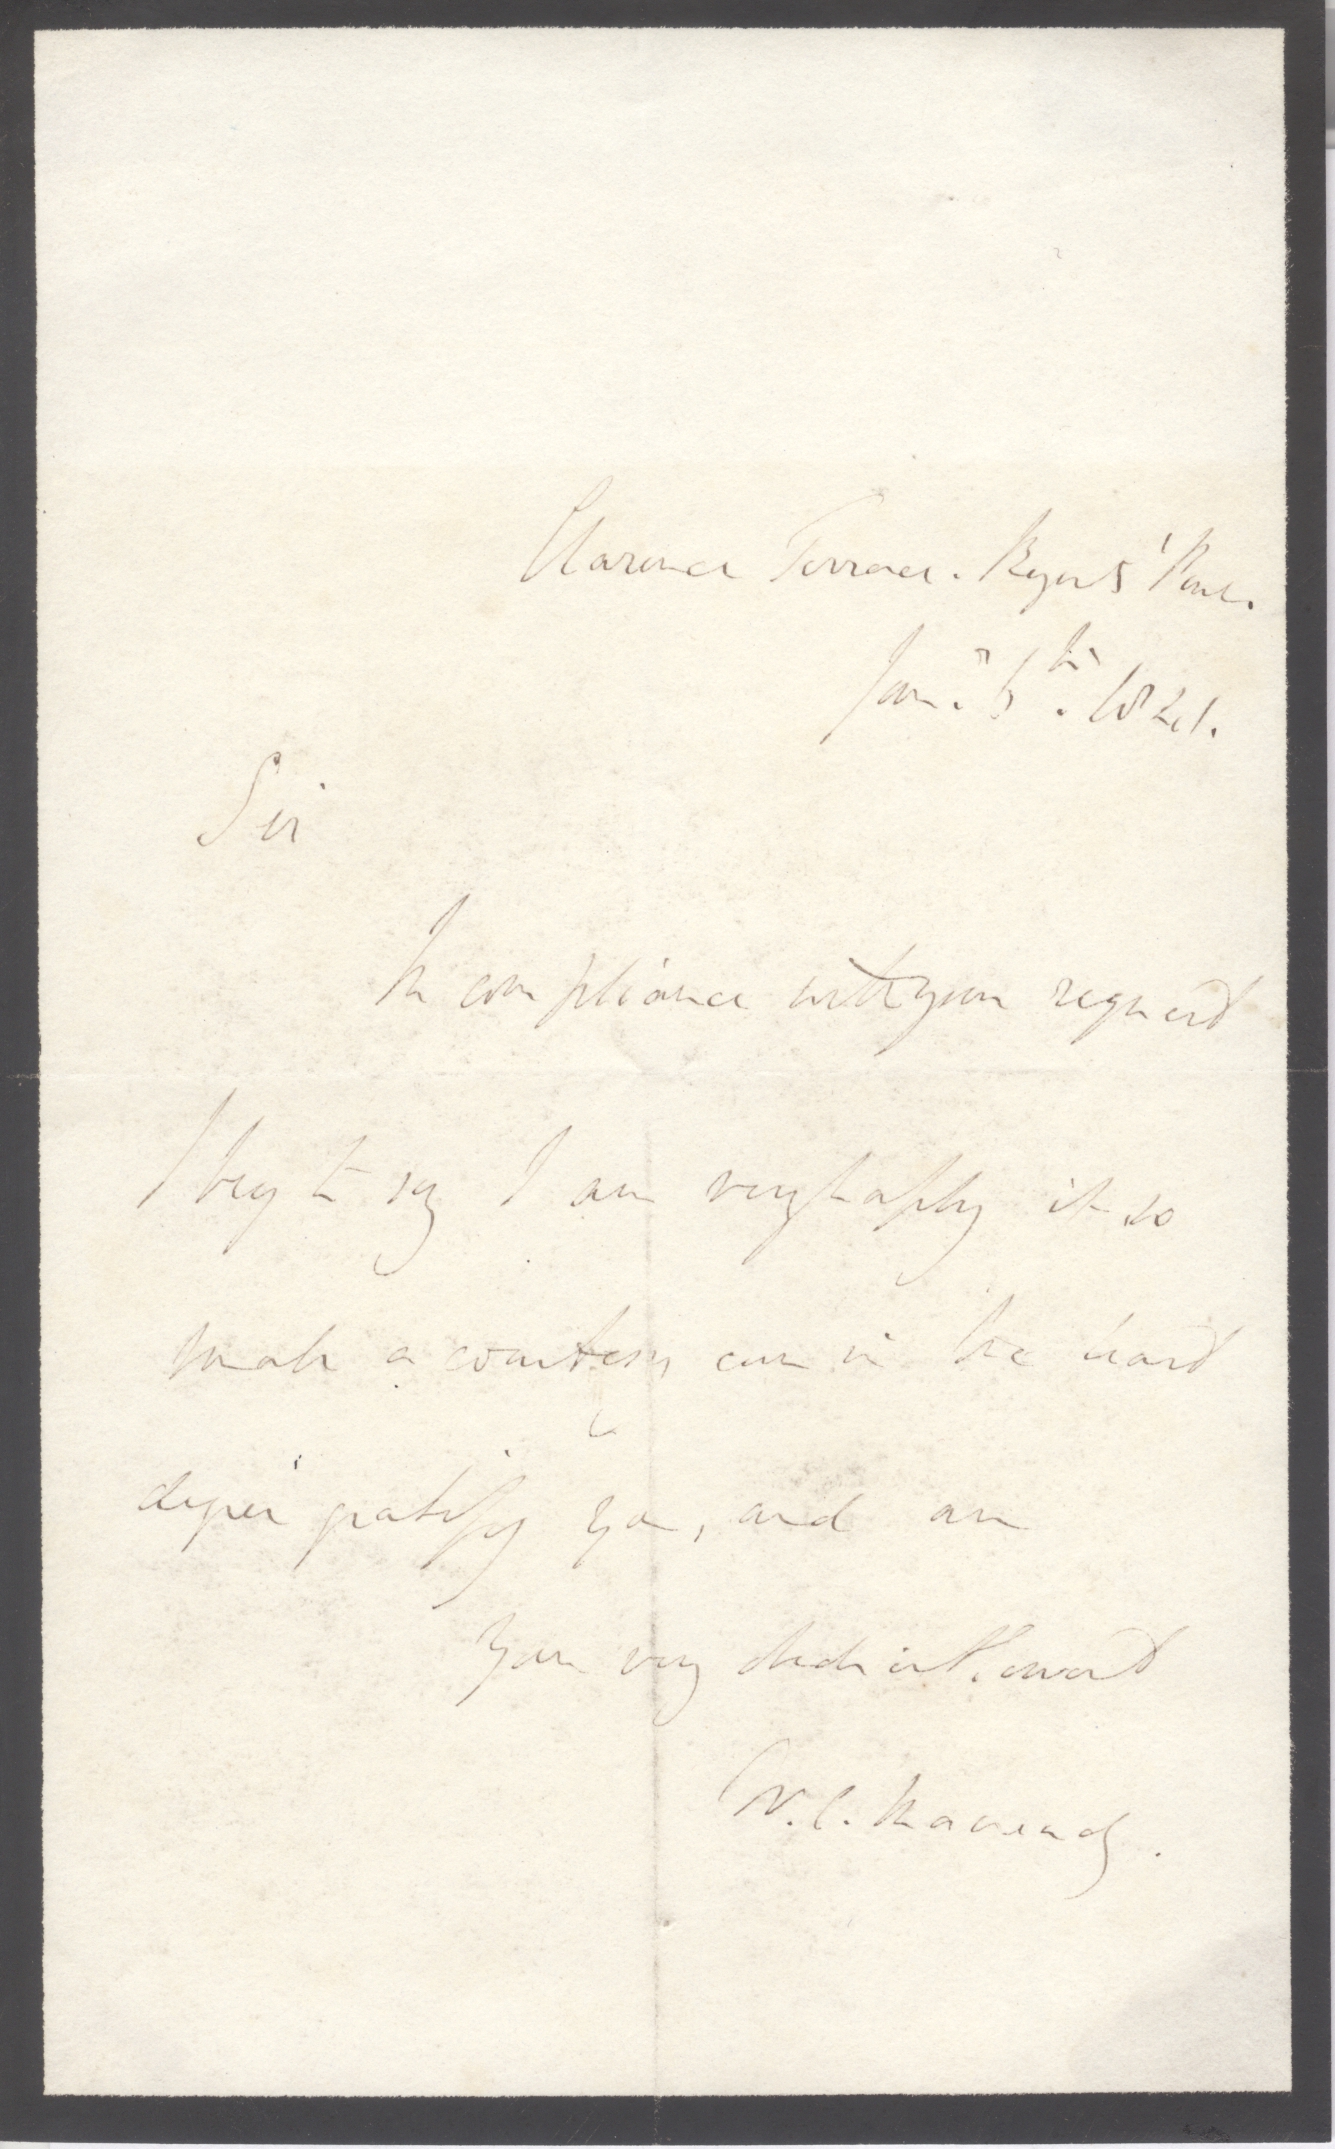 Clarence Terrace. Regents' Park.
Jan.y 6th. 1841.
Sir
In compliance with your request
I beg to say I am very happy if so
small a courtesy can in the least
degree gratify you, and am
Your very obedient servant
W. C. Macready.